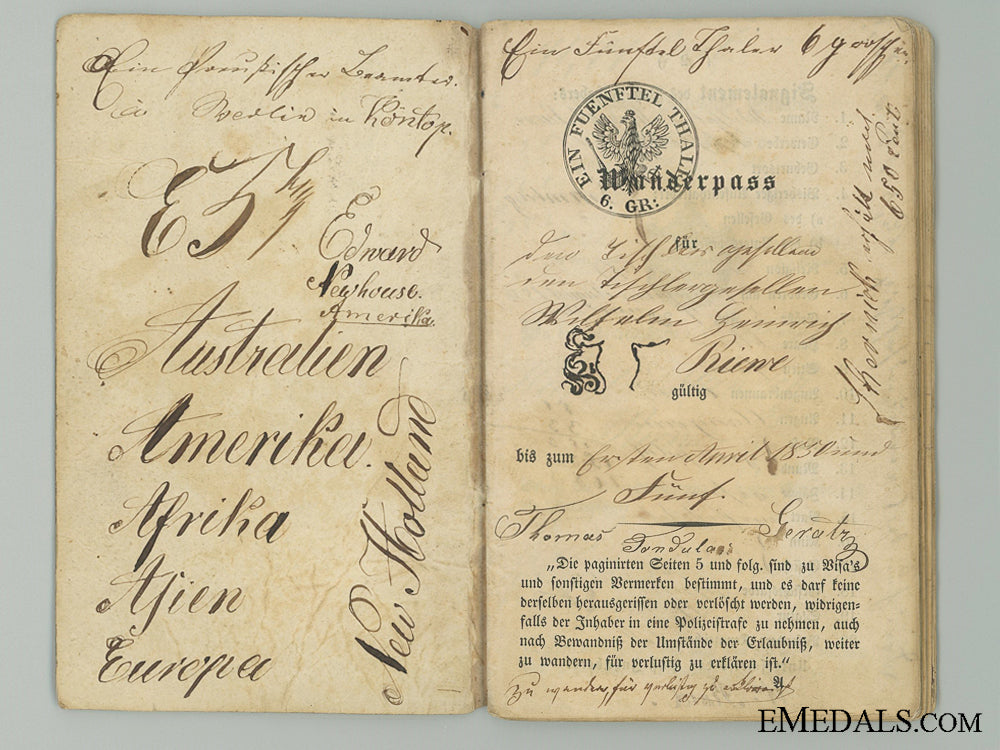 Ein Preußischer Beamter.
in Berlin in Köntop.
E
Edward
Newhouse.
Amerika.
Australien
Amerika.
Afrika
Asien
Europa
New Holland
Ein Fünftel Thaler 6 groschen
EIN FUENFTEL THALER
6. GR:
Wanderpass
für
den Tischlergesellen
den Tischlergesellen
Wilhelm Heinrich
Riewe
gültig
bis zum Ersten April 1850 und
Fünf.
Thomas Geratz
„Die paginirten Seiten 5 und folg. sind zu Visa's
und sonstigen Vermerken bestimmt, und es darf keine
derselben herausgerissen oder verlöscht werden, widrigen-
falls der Inhaber in eine Polizeistrafe zu nehmen, auch
nach Bewandniß der Umstände der Erlaubniß, weiter
zu wandern, für verlustig zu erklären ist.“
zu wandern, für verlustig zu
650
EMEDALS.COM